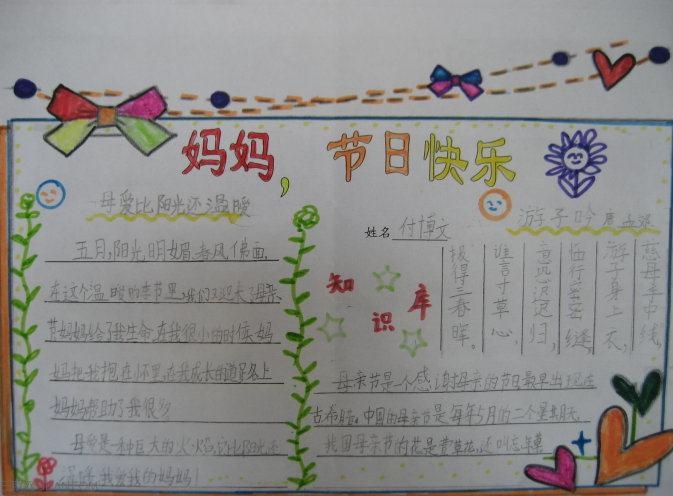 妈妈，节日快乐
母爱比阳光还温暖
五月，阳光明媚，春风佛面，
在这个温暖的季节里，我们又迎来了母亲
节妈妈给了我生命，在我很小的时候，妈
妈把我抱在怀里，在我成长的道路上
妈妈帮助了我很多
母爱是一种巨大的火焰，它比阳光还
温暖，我爱我的妈妈！
姓名 付博文
知识库
游子吟 唐 孟郊
慈母手中线，
游子身上衣，
临行密密缝，
意恐迟迟归，
谁言寸草心，
报得三春晖。
母亲节是一个感谢母亲的节日最早出现在
古希腊。中国的母亲节是每年5月的二个星期天。
我国母亲节的花是萱草花，还叫忘草